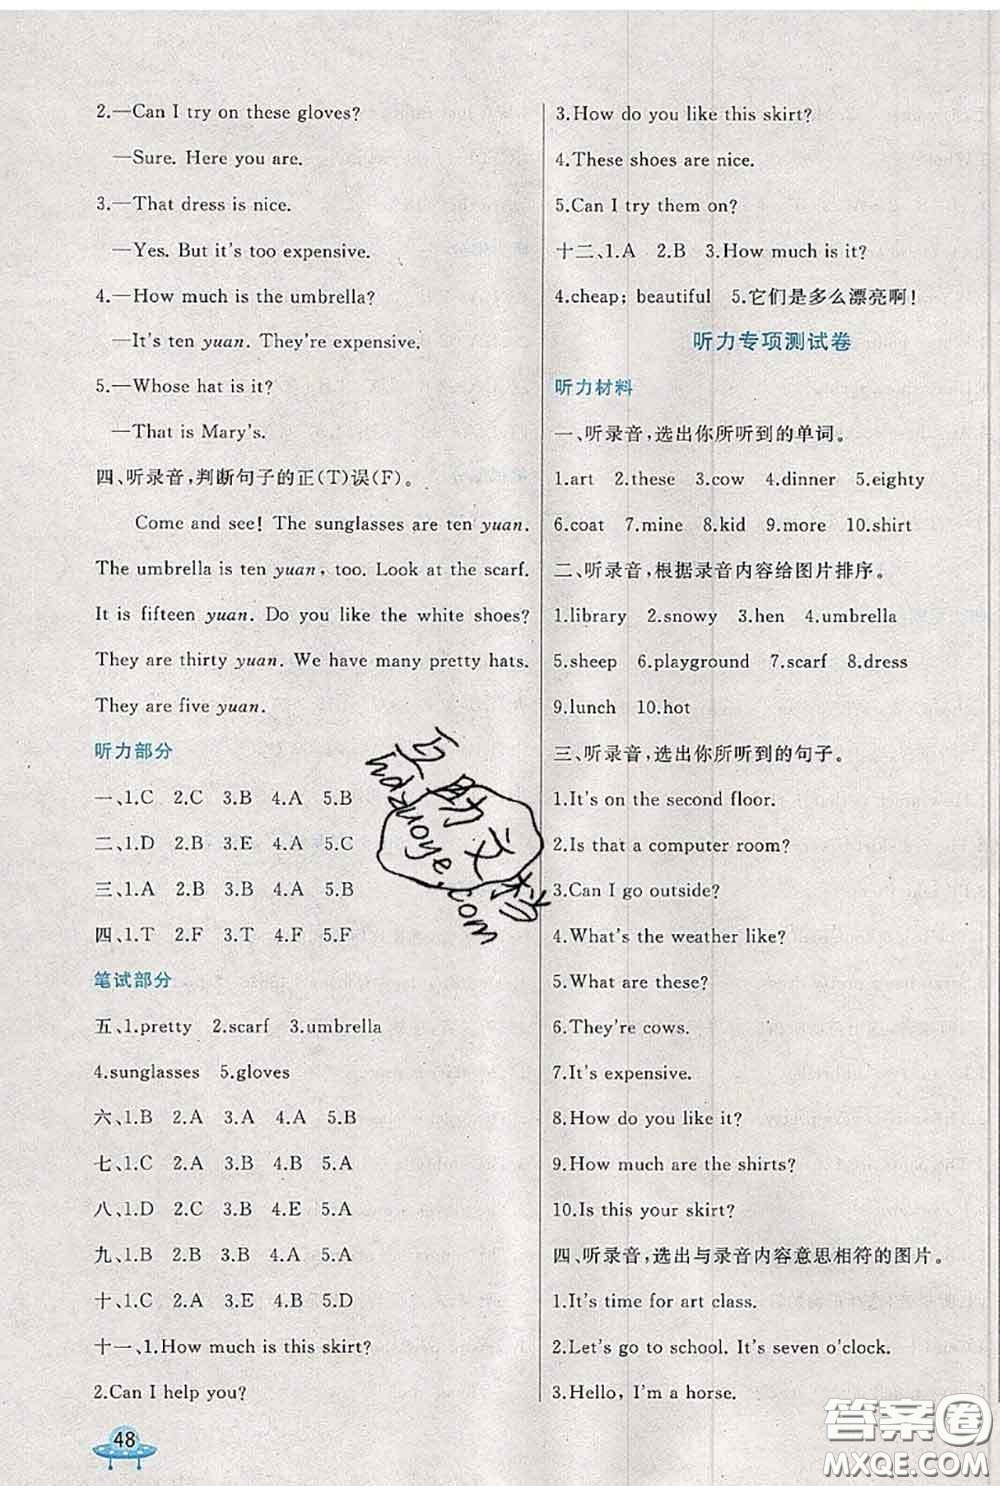 2.—Can I try on these gloves?
—Sure. Here you are.
3.—That dress is nice.
—Yes. But it's too expensive.
4.—How much is the umbrella?
—It's ten yuan. They're expensive.
5.—Whose hat is it?
—That is Mary's.
四、听录音,判断句子的正(T)误(F)。
Come and see! The sunglasses are ten yuan.
The umbrella is ten yuan, too. Look at the scarf.
It is fifteen yuan. Do you like the white shoes?
They are thirty yuan. We have many pretty hats.
They are five yuan.
听力部分
一、1.C 2.C 3.B 4.A 5.B
二、1.D 2.B 3.E 4.A 5.C
三、1.A 2.B 3.A 4.A 5.B
四、1.T 2.F 3.T 4.F 5.F
笔试部分
五、1.pretty 2.scarf 3.umbrella
4.sunglasses 5.gloves
六、1.B 2.A 3.A 4.A 5.B
七、1.C 2.A 3.B 4.B 5.A
八、1.D 2.C 3.B 4.E 5.A
九、1.B 2.B 3.B 4.A 5.A
十、1.C 2.A 3.E 4.B 5.D
十一、1.How much is this skirt?
2.Can I help you?
48
3.How do you like this skirt?
4.These shoes are nice.
5.Can I try them on?
十二、1.A 2.B 3.How much is it?
4.cheap; beautiful 5.它们是多么漂亮啊!
听力专项测试卷
听力材料
一、听录音,选出你所听到的单词。
1.art 2.these 3.cow 4.dinner 5.eighty
6.coat 7.mine 8.kid 9.more 10.shirt
二、听录音,根据录音内容给图片排序。
1.library 2.snowy 3.hen 4.umbrella
5.sheep 6.playground 7.scarf 8.dress
9.lunch 10.hot
三、听录音,选出你所听到的句子。
1.It's on the second floor.
2.Is that a computer room?
3.Can I go outside?
4.What's the weather like?
5.What are these?
6.They're cows.
7.It's expensive.
8.How do you like it?
9.How much are the shirts?
10.Is this your skirt?
四、听录音,选出与录音内容意思相符的图片。
1.It's time for art class.
2.Let's go to school. It's seven o'clock.
3.Hello, I'm a horse.
hdzuoye.com
答案卷
MXQE.COM